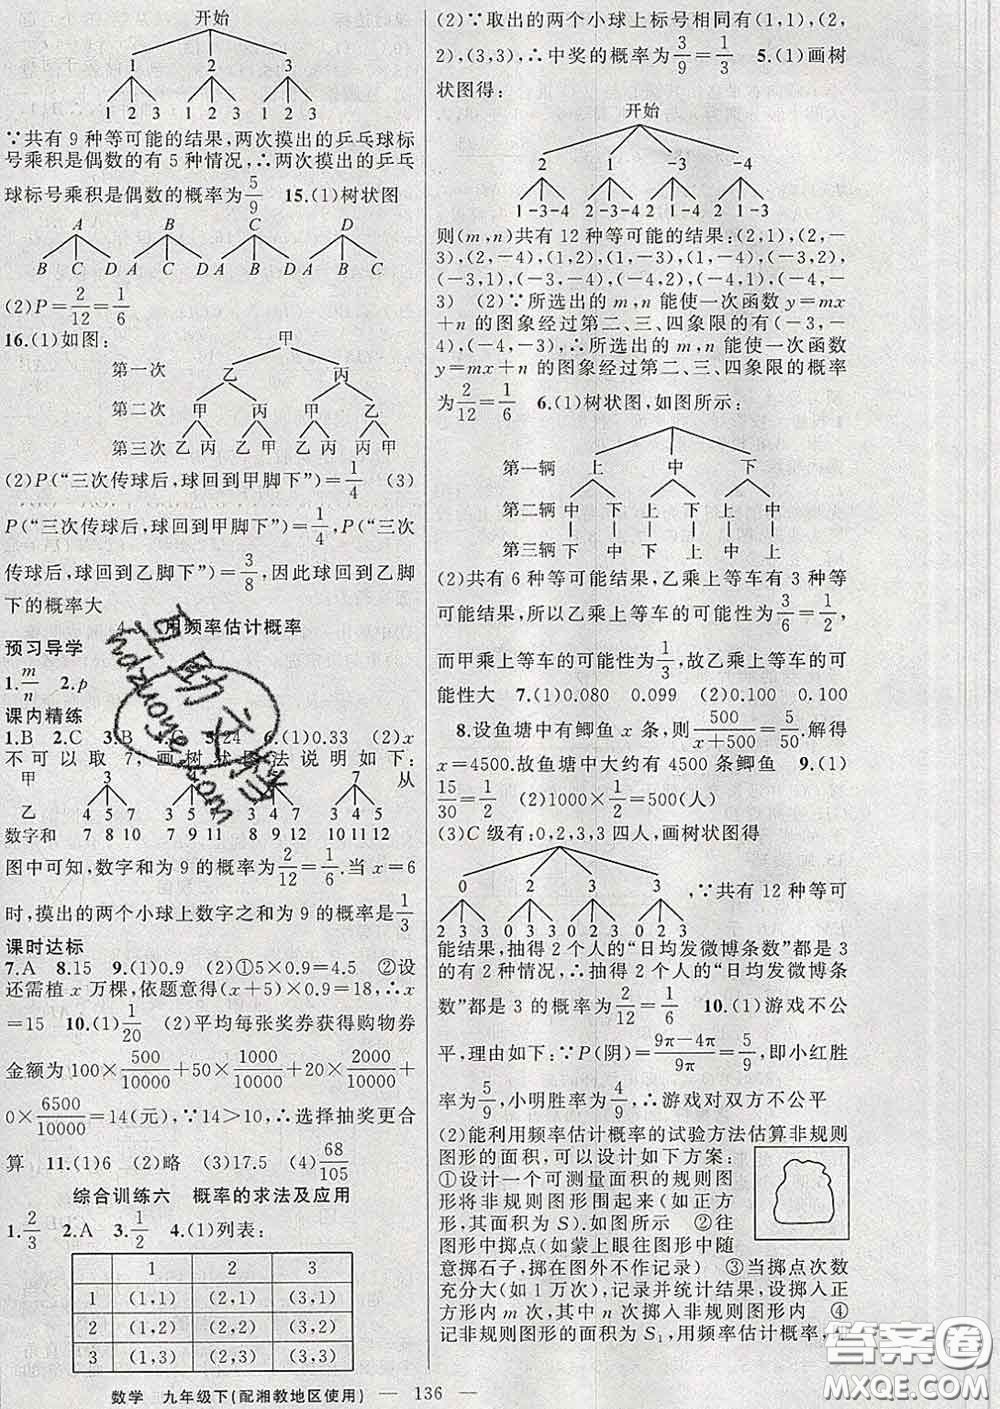 开始
1 2 3
1 2 3 1 2 3 1 2 3
∵共有 9 种等可能的结果,两次摸出的乒乓球标
号乘积是偶数的有 5 种情况,∴两次摸出的乒乓
球标号乘积是偶数的概率为5/9 15.(1)树状图
A B C D
B C D A C D A B D A B C
(2)P=2/12=1/6
16.(1)如图:
甲
第一次 乙 丙
第二次 甲 丙 甲 乙
第三次 乙 丙 乙 甲 乙 丙 甲 丙
(2)P(“三次传球后,球回到甲脚下”)=1/4 (3)
P(“三次传球后,球回到甲脚下”)=1/4,P(“三次
传球后,球回到乙脚下”)=3/8,因此球回到乙脚
下的概率大
用频率估计概率
预习导学
1.m/n 2.p
课内精练
1.B 2.C 3.B 5.24 6.(1)0.33 (2)x
不可以取 7,画树状图法说明如下:
甲 3 7 从
乙 4 5 7 3 5 7 3 4 7 3 4 5
数字和 7 8 10 7 9 11 8 9 12 10 11 12
图中可知,数字和为 9 的概率为2/12=1/6.当 x=6
时,摸出的两个小球上数字之和为 9 的概率是1/3
课时达标
7.A 8.15 9.(1)0.9 (2)①5×0.9=4.5 ②设
还需植 x 万棵,依题意得(x+5)×0.9=18,∴x
=15 10.(1)1/20 (2)平均每张奖券获得购物券
金额为 100×500/10000+50×1000/10000+20×2000/10000+
0×6500/10000=14(元),∵14>10,∴选择抽奖更合
算 11.(1)6 (2)略 (3)17.5 (4)68/105
综合训练六 概率的求法及应用
1.2/3 2.A 3.1/2 4.(1)列表:
1 2 3
1 (1,1) (2,1) (3,1)
2 (1,2) (2,2) (3,2)
3 (1,3) (2,3) (3,3)
(2)∵取出的两个小球上标号相同有(1,1),(2,
2),(3,3),∴中奖的概率为3/9=1/3 5.(1)画树
状图得:
开始
2 1 -3 -4
1 -3 -4 2 -3 -4 2 1 -4 2 1 -3
则(m,n)共有 12 种等可能的结果:(2,1),(2,-
3),(2,-4),(1,2),(1,-3),(1,-4),(-3,2),
(-3,1),(-3,-4),(-4,2),(-4,1),(-4,-
3) (2)∵所选出的 m,n 能使一次函数 y=mx
+n 的图象经过第二、三、四象限的有(-3,-4),
(-4,-3),∴所选出的 m,n 能使一次函数
y=mx+n 的图象经过第二、三、四象限的概率
为2/12=1/6 6.(1)树状图,如图所示:
第一辆 上 中 下
第二辆 中 下 上 下 上 中
第三辆 下 中 下 上 中 上
(2)共有 6 种等可能结果,乙乘上等车有 3 种等
可能结果,所以乙乘上等车的可能性为3/6=1/2,
而甲乘上等车的可能性为1/3,故乙乘上等车的可
能性大 7.(1)0.080 0.099 (2)0.100 0.100
8.设鱼塘中有鲫鱼 x 条,则500/(x+500)=5/50.解得
x=4500.故鱼塘中大约有 4500 条鲫鱼 9.(1)
15/30=1/2 (2)1000×1/2=500(人)
(3)C 级有:0,2,3,3 四人,画树状图得
0 2 3 3 ,∵共有 12 种等可
2 3 3 0 3 3 0 2 3 0 2 3
能结果,抽得 2 个人的“日均发微博条数”都是 3
的有 2 种情况,∴抽得 2 个人的“日均发微博条
数”都是 3 的概率为2/12=1/6 10.(1)游戏不公
平,理由如下:∵P(阴)=(9π-4π)/9π=5/9,即小红胜
率为5/9,小明胜率为4/9,∴游戏对双方不公平
(2)能利用频率估计概率的试验方法估算非规则
图形的面积,可以设计如下方案:
①设计一个可测量面积的规则图
形将非规则图形围起来(如正方
形,其面积为 S).如图所示 ②往
图形中掷点(如蒙上眼往图形中随
意掷石子,掷在图外不作记录) ③当掷点次数
充分大(如 1 万次),记录并统计结果,设掷入正
方形内 m 次,其中 n 次掷入非规则图形内 ④
记非规则图形的面积为 S₁,用频率估计概率,
数学 九年级下(配湘教地区使用) — 136 —
互助文档
hdzuoye.com
答案圈
MXQE.COM